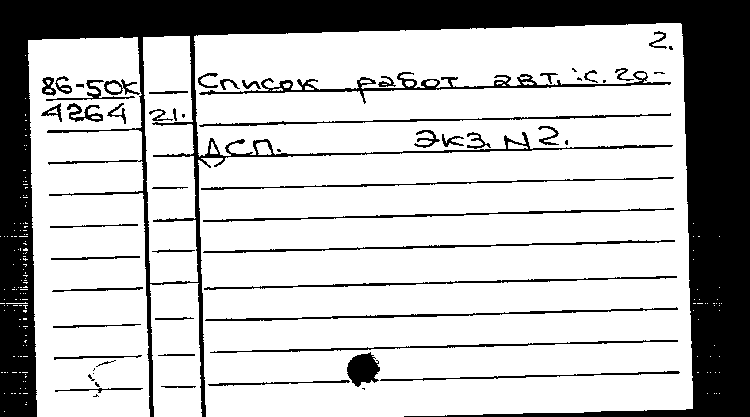 2.
86-50К Список работ авт.:с. 20-
4264 21.
ДСП. Экз. N2.